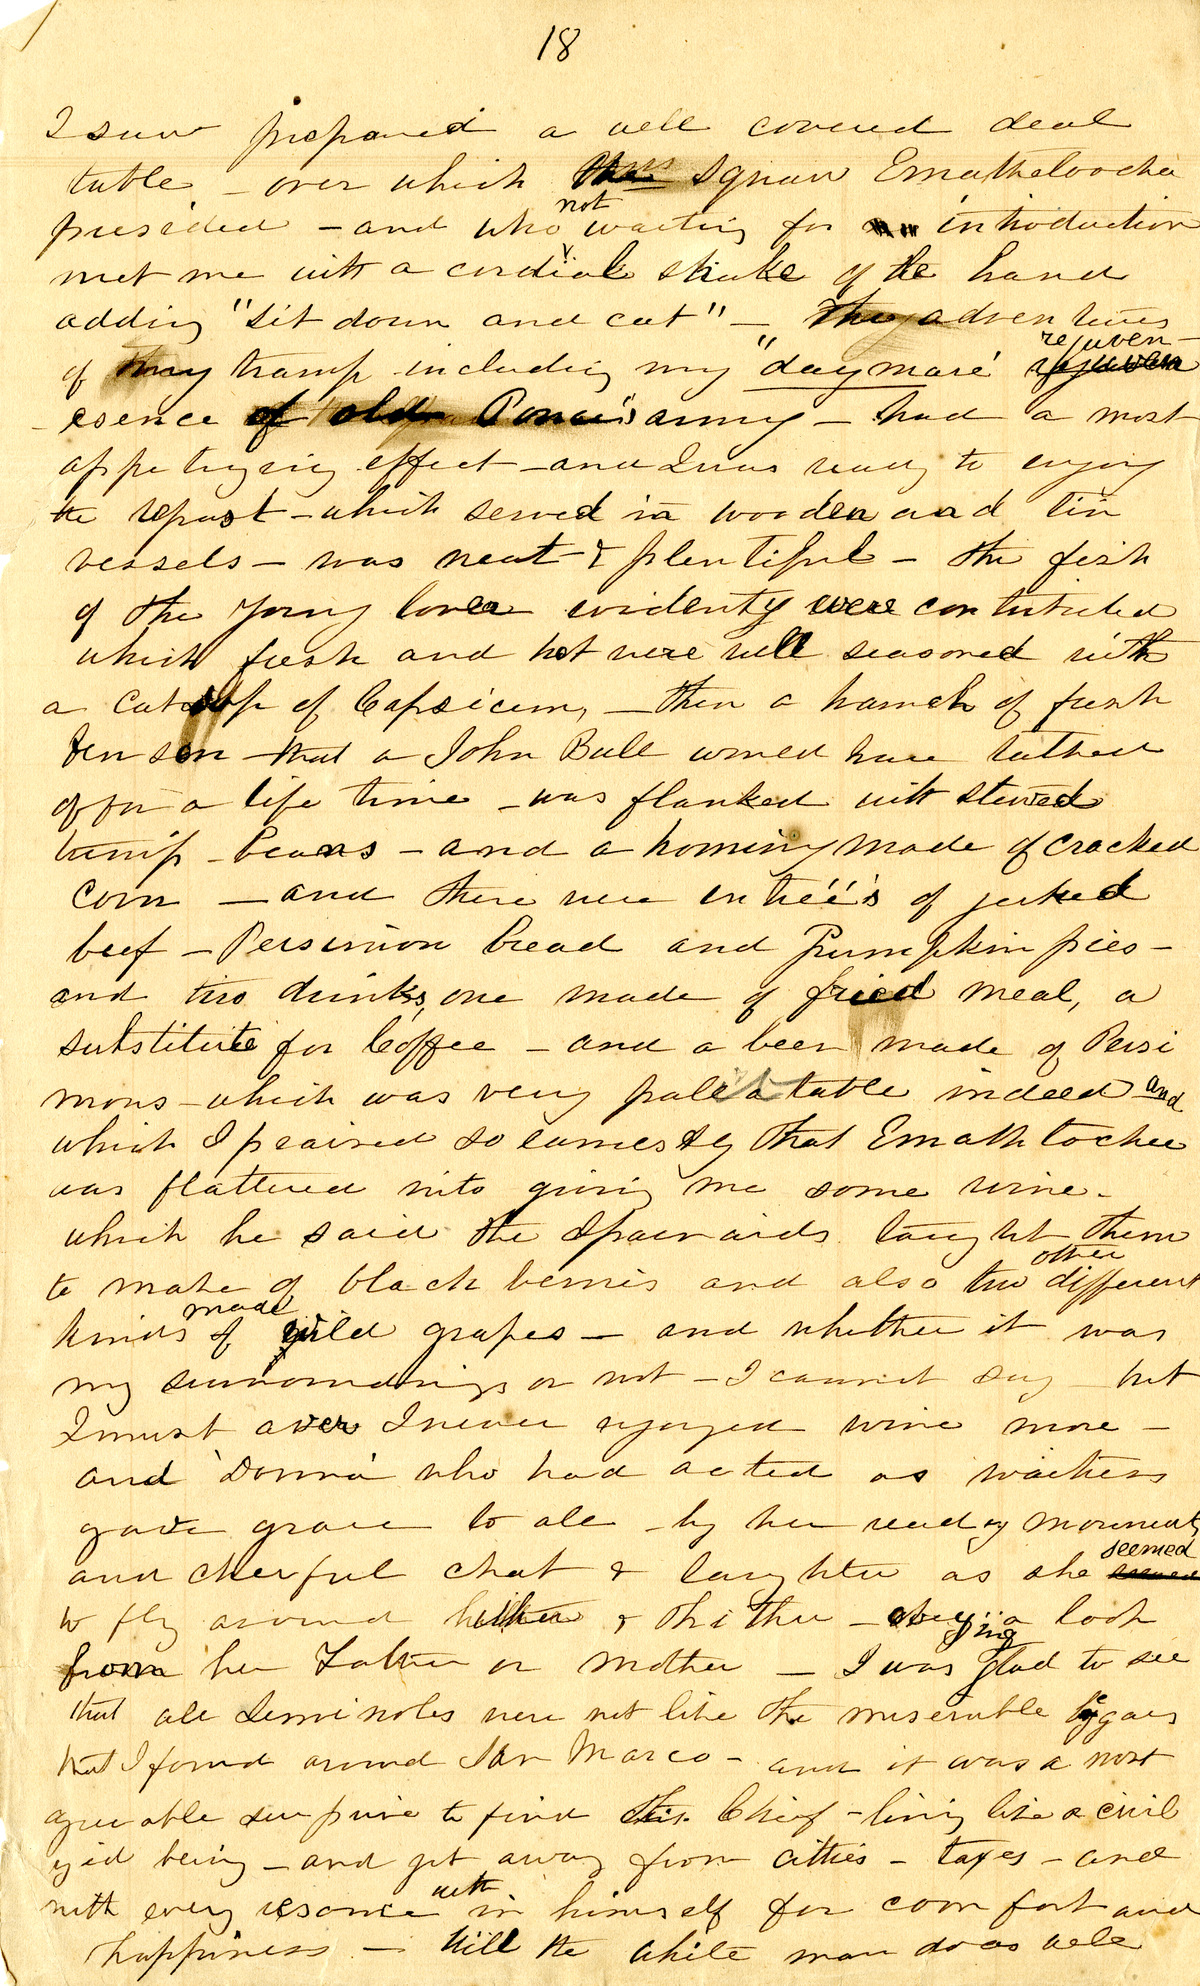 18
I saw prepared a well covered deal
table - over which squaw Ematheloochee
presided - and who not waiting for introduction
met me with a cordial shake of the hand
adding "sit down and eat" - The adventures
of my tramp including my "daymare' rejuven-
esence of old Ponce's army - had a most
appetizing effect - and I was ready to enjoy
the repast - which served in wooden and tin
vessels - was neat & plentiful - the fish
of the young lover evidently were contributed
which fresh and hot were well seasoned with
a catsup of Capsicum, - then a haunch of fresh
Venson - that a John Bull would have talked
of for a life time - was flanked with stewed
turnip - beans - and a hominy made of cracked
corn - and there were entréé's of jerked
beef - Persimon bread and Pumpkin pies -
and two drinks, one made of fried meal, a
substitute for Coffee - and a beer made of Persi
mons - which was very palatable indeed - and
which I praised so earnestly that Emathlochee
was flattered into giving me some wine -
which he said the Spaniards taught them
to make of black berries and also two other different
kinds made of wild grapes - and whether it was
my surroundings or not - I cannot say - but
I must aver I never enjoyed wine more -
and 'Donna' who had acted as waitress
gave grace to all - by her ready movements
and cheerful chat & laughter as she seemed
to fly around hither & thither - obeying a look
from her Father or mother - I was glad to see
that all Seminoles were not like the miserable begars
that I found around San Marco - and it was a most
agreeable surprise to find this Chief - living like a civil
ized being - and yet away from citties - taxes - and
with every resource with in himself for comfort and
happiness - till the white man does all